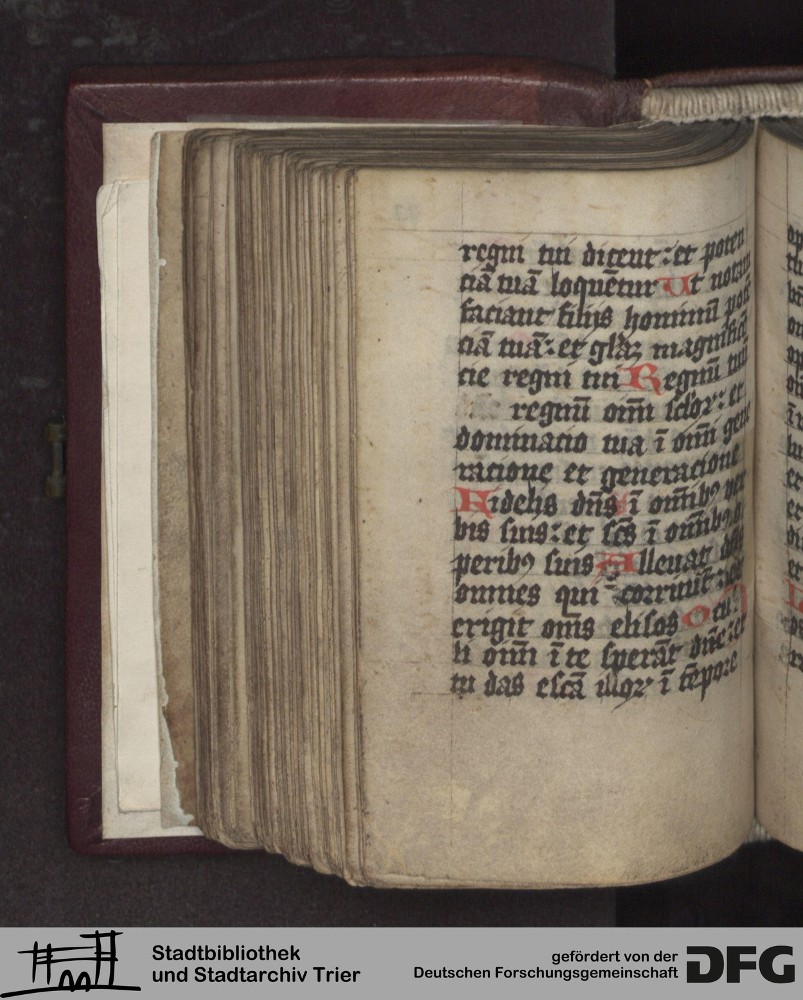 regni tui dicent: et poten
ciā tuā loquētur Ut notam
faciant filiis hominū potē
ciā tuā: et glāȝ magnificē
cie regni tui Regnū tuū
regnū om̄i sc̄loꝝ: et
dominacio tua ī om̄i gene
racione et generacione
Fidelis dn̄s ī om̄ibꝰ ver
bis suis: et sc̄s ī om̄ibꝰ o
peribꝰ suis Alleuat dn̄s
omnes qui corruūt: et
erigit om̄s elisos Ocu
li om̄i ī te sperāt dn̄e: et
tu das escā illoꝝ ī tēpore
Stadtbibliothek
und Stadtarchiv Trier
gefördert von der
Deutschen Forschungsgemeinschaft
DFG